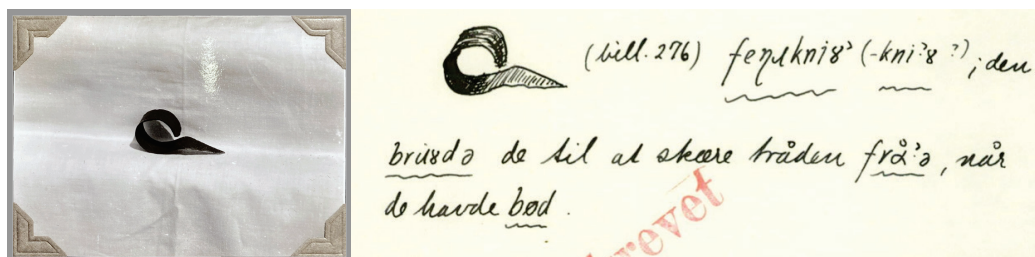 (bill. 276) feŋʌkniɤˀ (-kniˀɤ ?); den
bruɤdə de til at skære tråden frå̀ˀə, når
de havde bød.
revet